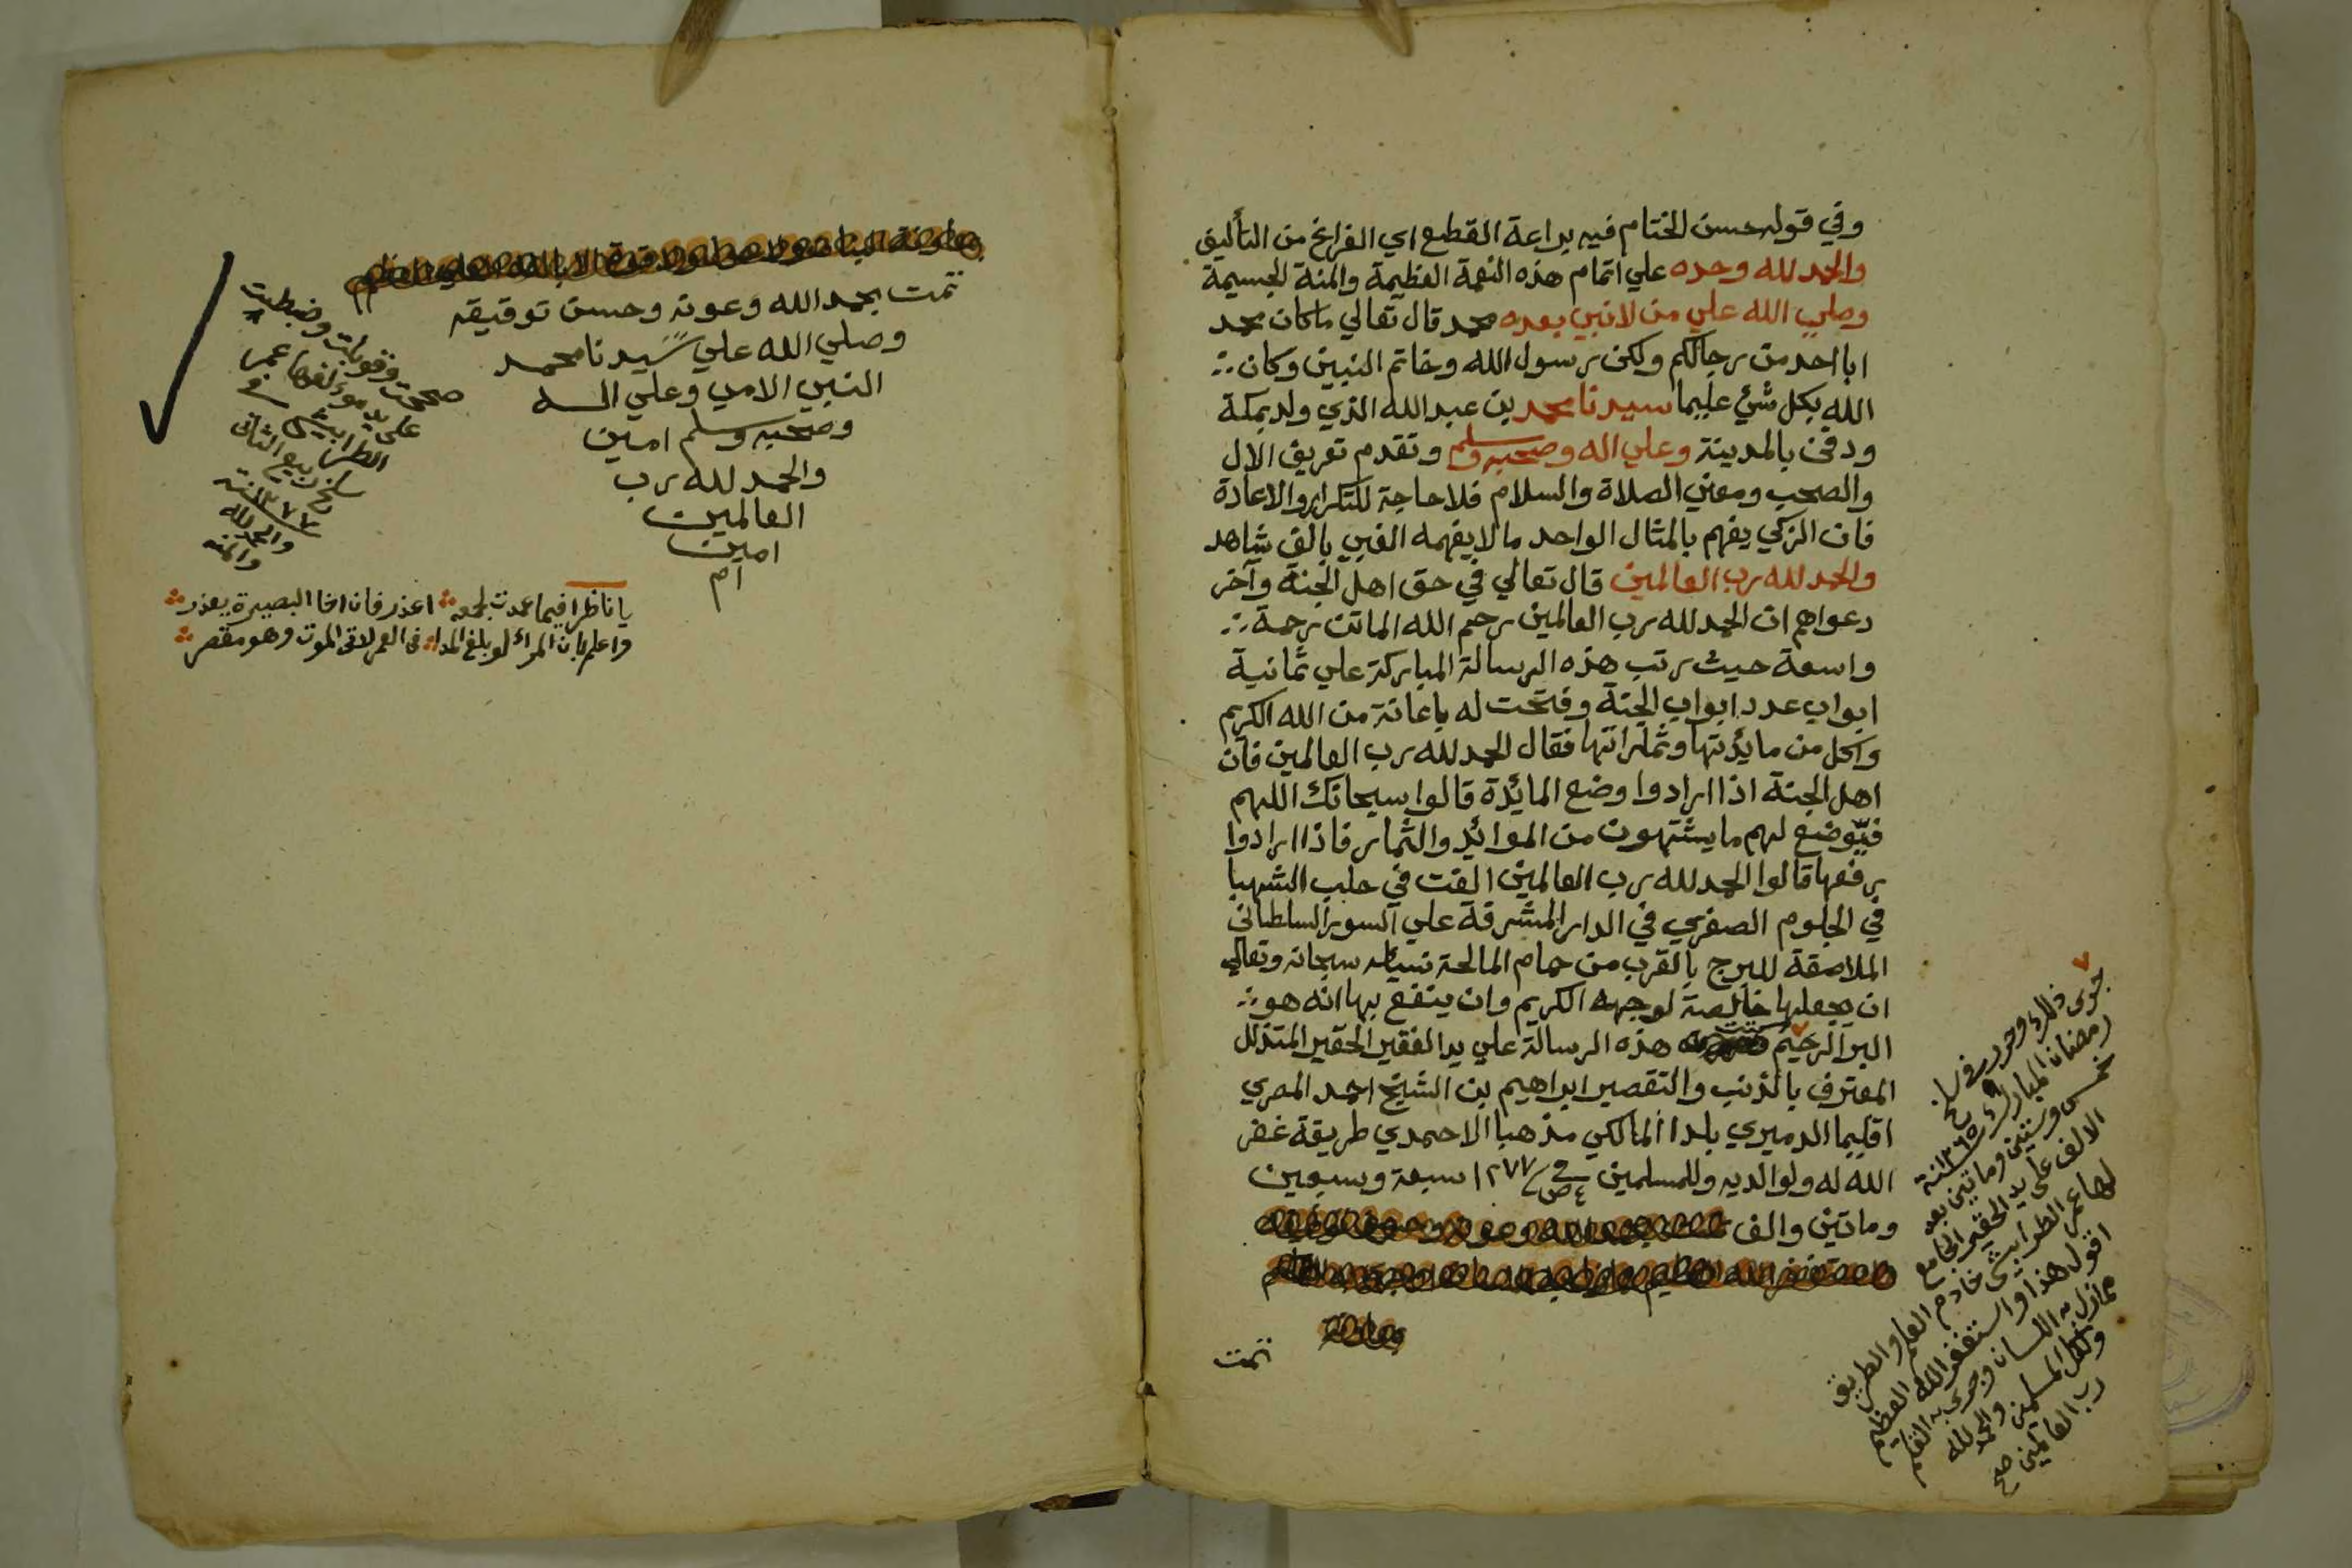 وفي قوله حسن الختام فيه براعة القطع اي الفراغ من التأليف
والحمد لله وحده علي اتمام هذه النعمة العظيمة والمنة الجسيمة
وصلي الله علي من لا نبي بعده محمد قال تعالي ما كان محمد
ابا احد من رجالكم ولكن رسول الله وخاتم النبيين وكان
الله بكل شئ عليما سيدنا محمد بن عبد الله الذي ولد بمكة
ودفن بالمدينة وعلي اله وصحبه وسلم وتقدم تعريف الال
والصحب ومعني الصلاة والسلام فلا حاجة للتكرار والاعادة
فان الزكي يفهم بالمثال الواحد ما لا يفهمه الغبي بالف شاهد
والحمد لله رب العالمين قال تعالي في حق اهل الجنة وآخر
دعواهم ان الحمد لله رب العالمين رحم الله الماتن رحمة
واسعة حيث رتب هذه الرسالة المباركة علي ثمانية
ابواب عدد ابواب الجنة وفتحت له باعانة من الله الكريم
واكل من مايدتها وثمراتها فقال الحمد لله رب العالمين فان
اهل الجنة اذا ارادوا وضع المائدة قالوا سبحانك اللهم
فيوضع لهم ما يشتهون من الموائد والثمار فاذا ارادوا
رفعها قالوا الحمد لله رب العالمين الفت في حلب الشهبا
في الجلوم الصغري في الدار المشرفة علي السور السلطاني
الملاصقة للبرج بالقرب من حمام المالحة نسأله سبحانه وتعالي
ان يجعلها خالصة لوجهه الكريم وان ينفع بها انه هو
البر الرحيم كتبت هذه الرسالة علي يد الفقير الحقير المتذلل
المعترف بالذنب والتقصير ابراهيم بن الشيخ احمد المصري
اقليما الدميري بلدا المالكي مذهبا الاحمدي طريقة غفر
الله له ولوالديه وللمسلمين ١٢٧٧ سبعة وسبعين
وماتين والف
تمت
جرى ذلك وحرر في سلخ
رمضان المبارك ١٢٦٥ سنة
خمس وستين وماتين بعد
الالف على يد الحقير الجامع
لها عمر الطرابيشي خادم العلم والطريق
اقول هذا واستغفر الله العظيم
مما زل به اللسان وجرى به القلم
ولكل المسلمين والحمد لله
رب العالمين صح
تمت بحمد الله وعونه وحسن توفيقه
وصلي الله علي سيدنا محمد
النبي الامي وعلي اله
وصحبه وسلم امين
والحمد لله رب
العالمين
امين
ام
صححت وقوبلت وضبطت
على يد مؤلفها عمر
الطرابيشي في
سلخ ربيع الثاني
١٢٧٣ سنة
والحمد لله
والمنه
يا ناظرا فيما عمدت لجمعه اعذر فان اخا البصيرة يعذر
واعلم بان المرأ لو بلغ المدا في العمر لاقى الموت وهو مقصر